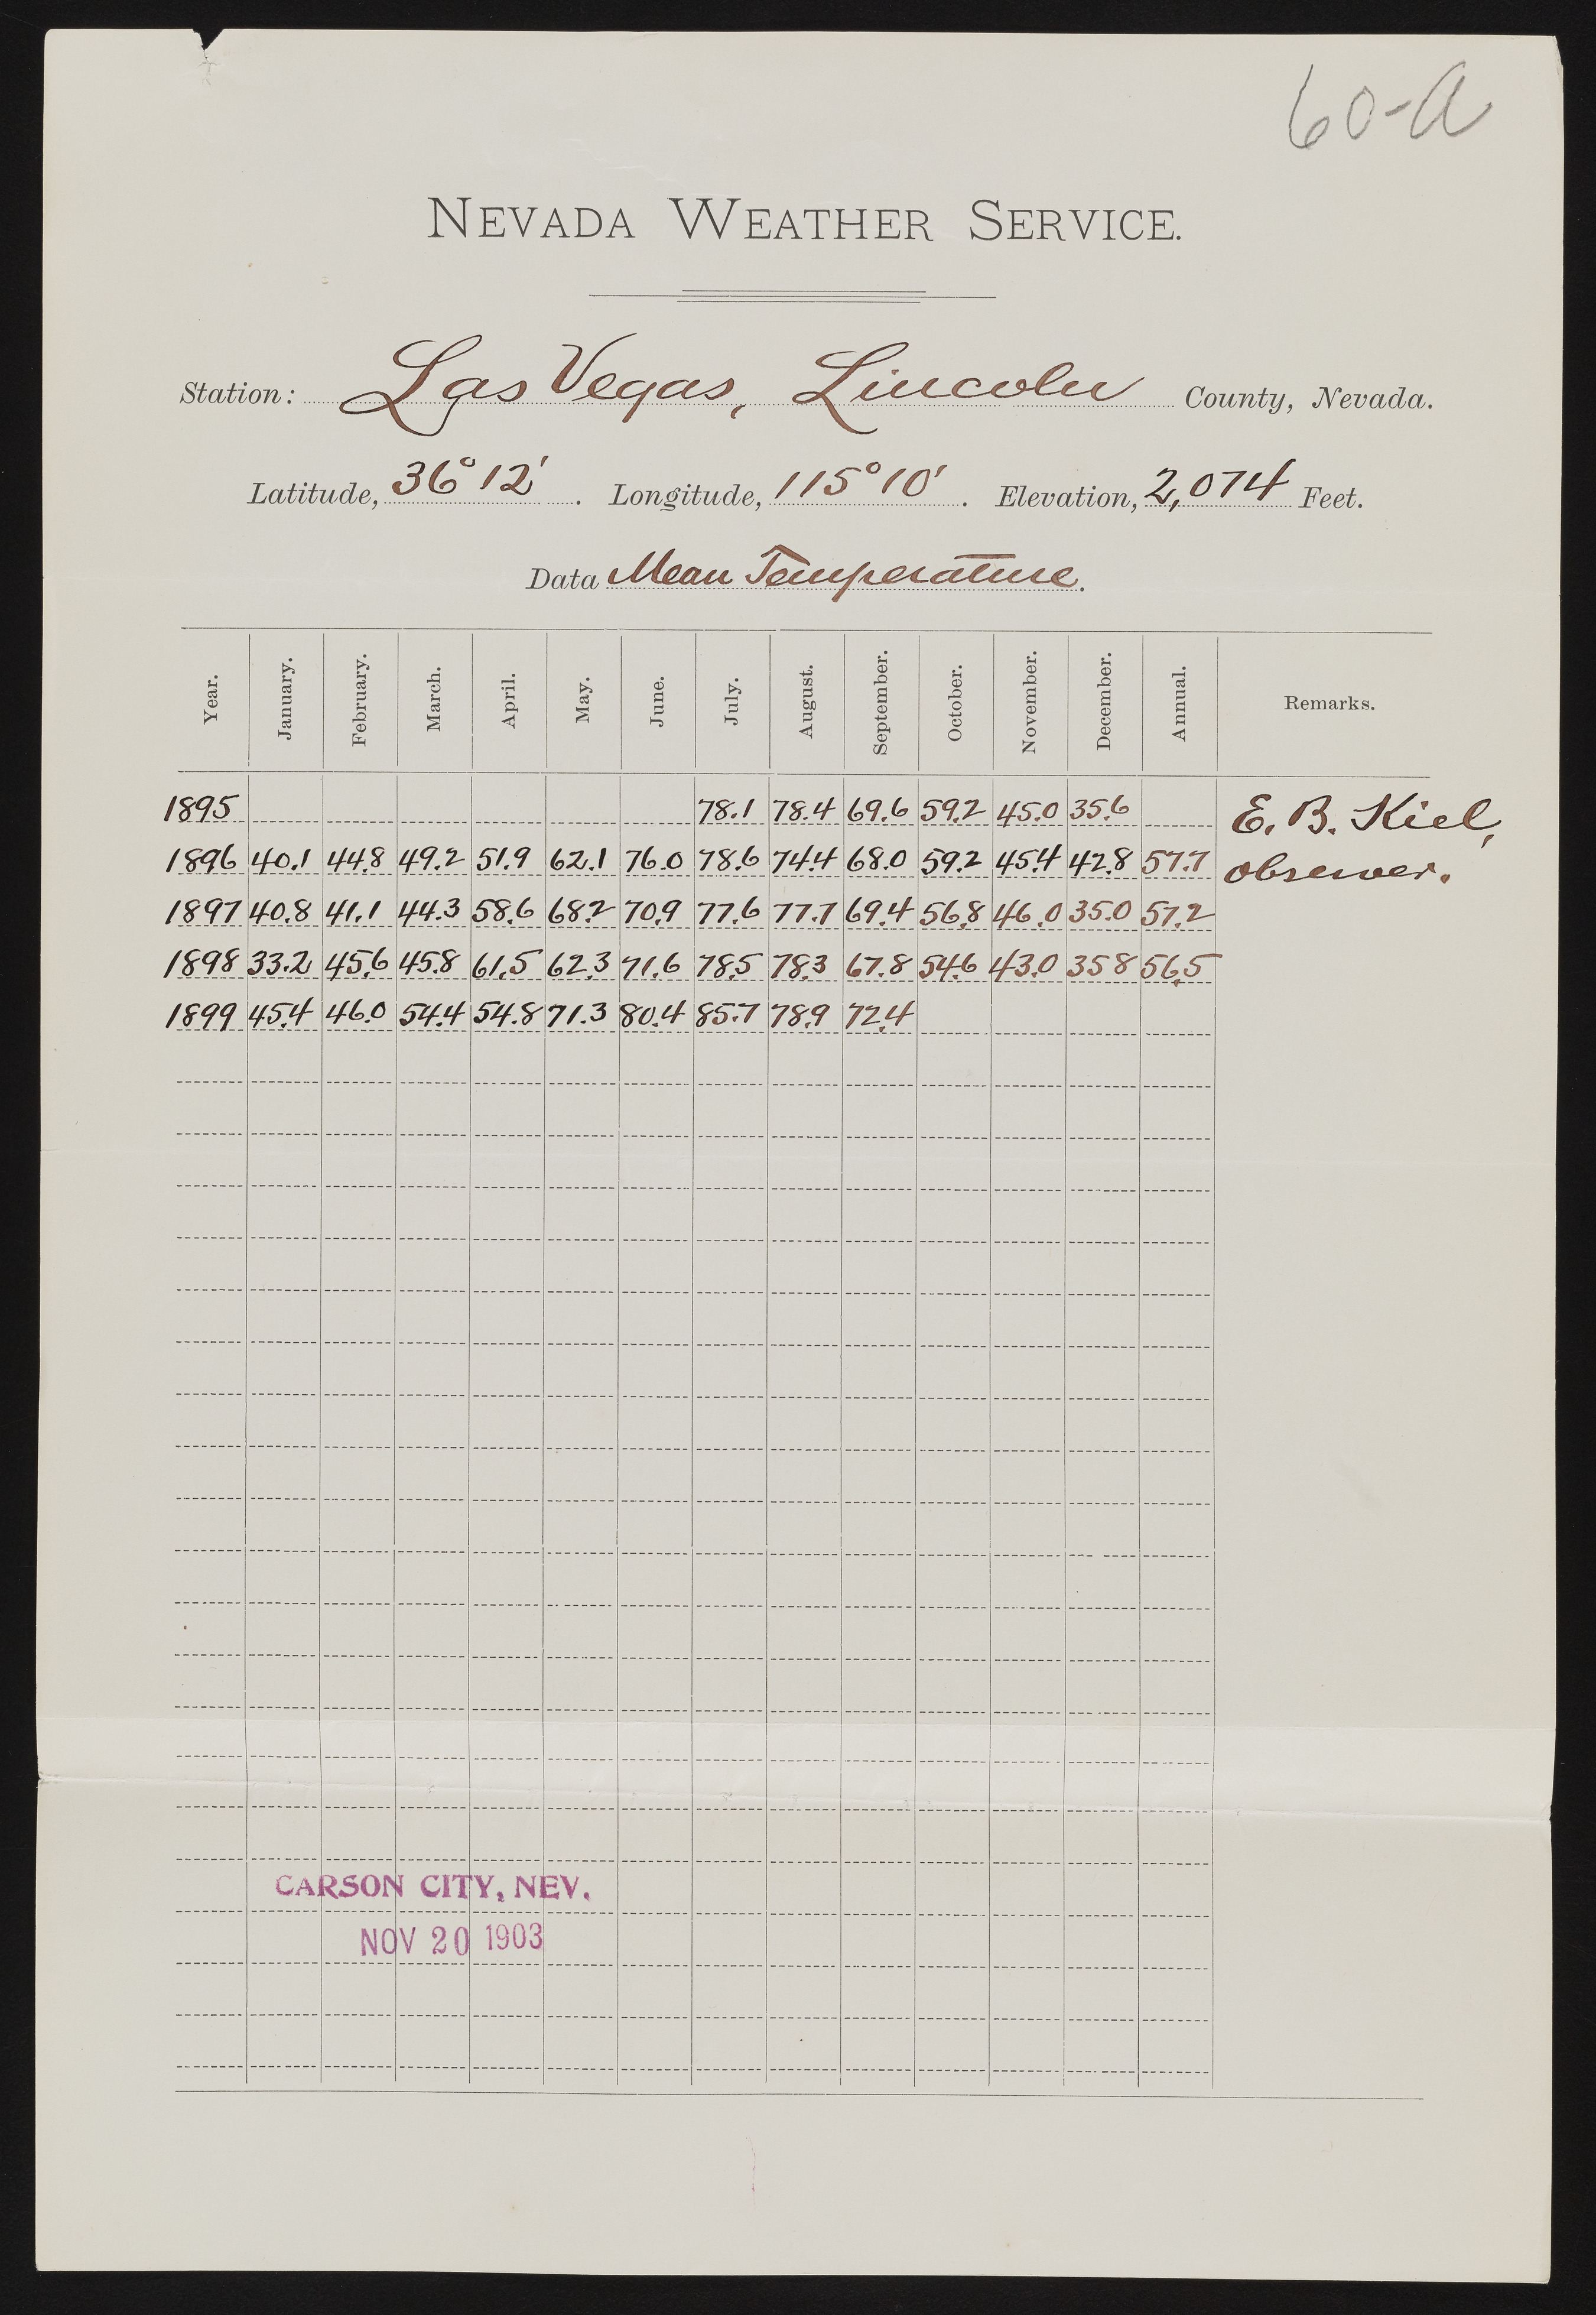 60-a
NEVADA WEATHER SERVICE.
Station: Las Vegas, Lincoln County, Nevada.
Latitude, 36° 12'. Longitude, 115° 10'. Elevation, 2,074 Feet.
Data Mean Temperature.
Year. January. February. March. April. May. June. July. August. September. October. November. December. Annual. Remarks.
1895 78.1 78.4 69.6 59.2 45.0 35.6 E. B. Kiel,
1896 40.1 44.8 49.2 51.9 62.1 76.0 78.6 74.4 68.0 59.2 45.4 42.8 57.7 observer.
1897 40.8 41.1 44.3 58.6 68.2 70.9 77.6 77.7 69.4 56.8 46.0 35.0 57.2
1898 33.2 45.6 45.8 61.5 62.3 71.6 78.5 78.3 67.8 54.6 43.0 35.8 56.5
1899 45.4 46.0 54.4 54.8 71.3 80.4 85.7 78.9 72.4
CARSON CITY, NEV.
NOV 20 1903